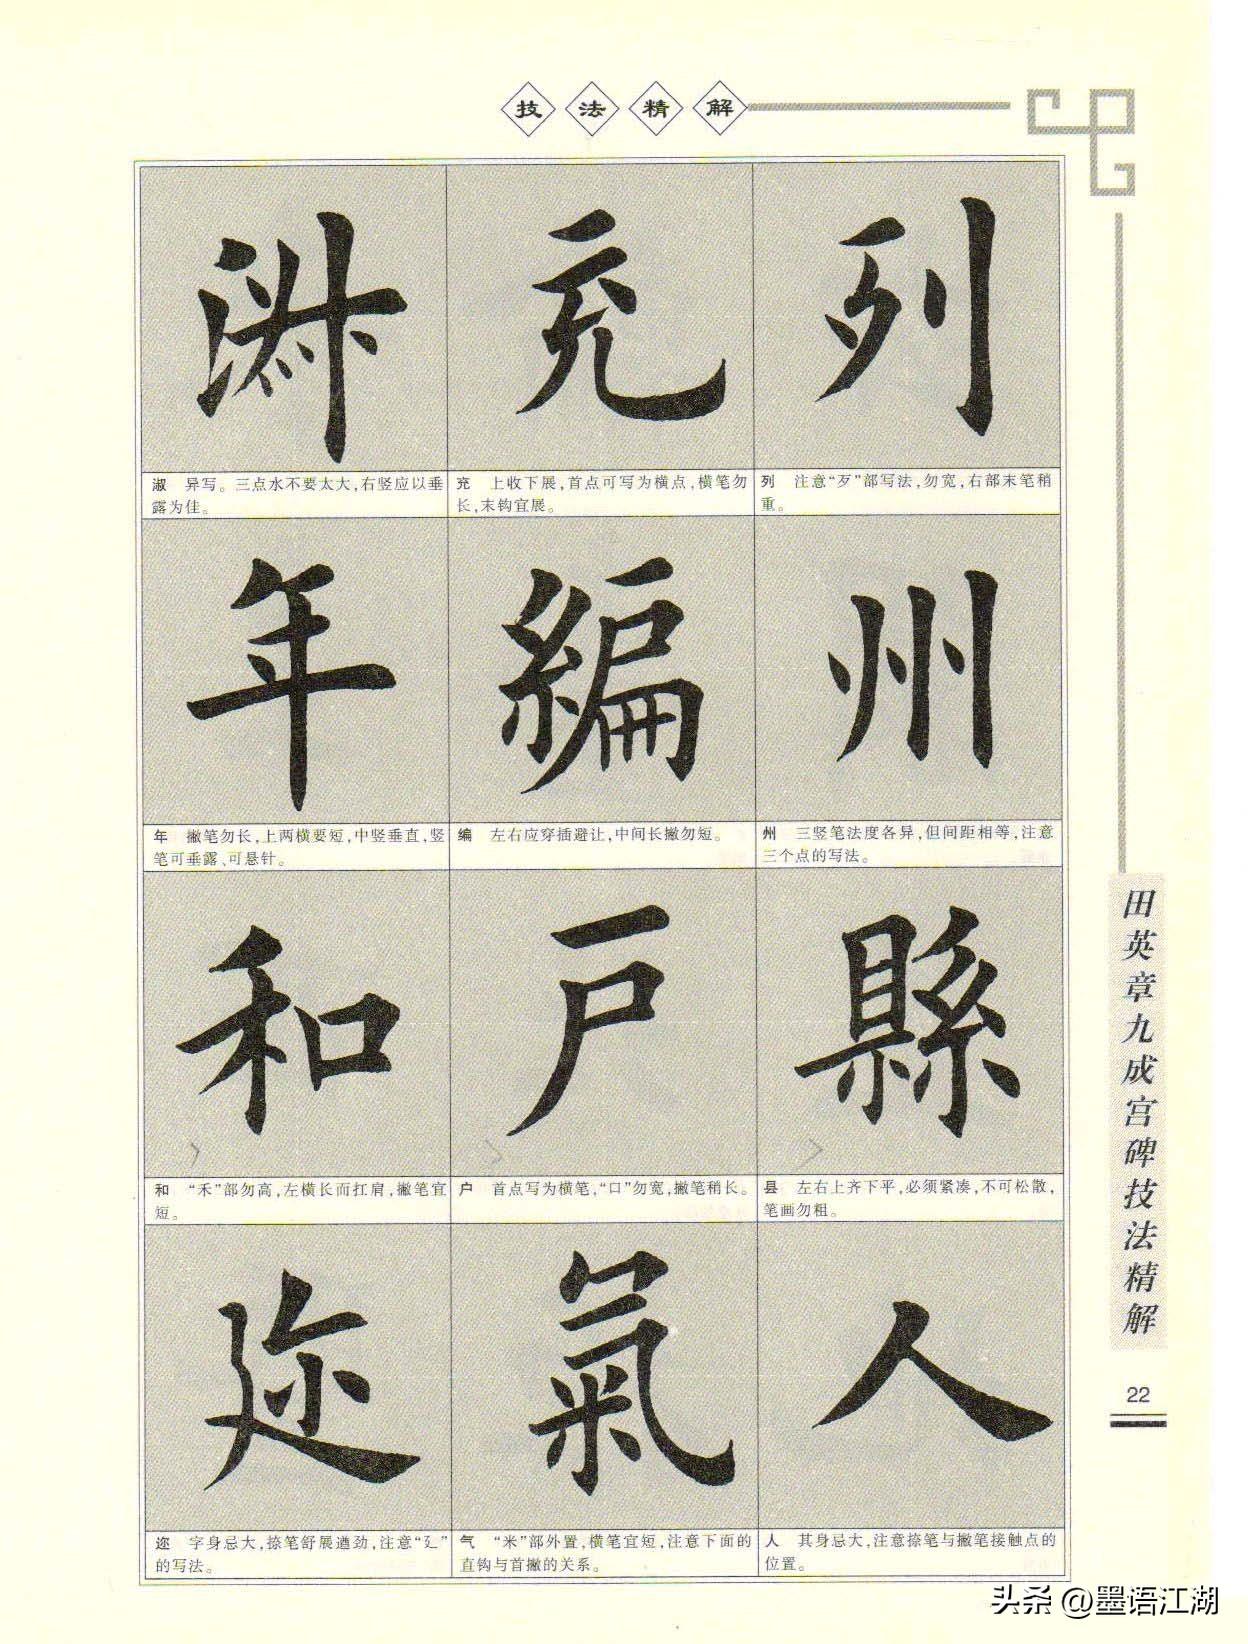 技法精解
淋 充 列
淑 异写。三点水不要太大,右竖应以垂
露为佳。
充 上收下展,首点可写为横点,横笔勿
长,末钩宜展。
列 注意“歹”部写法,勿宽,右部末笔稍
重。
年 編 州
年 撇笔勿长,上两横要短,中竖垂直,竖
笔可垂露、可悬针。
编 左右应穿插避让,中间长撇勿短。
州 三竖笔法度各异,但间距相等,注意
三个点的写法。
和 戸 縣
和 “禾”部勿高,左横长而扛肩,撇笔宜
短。
户 首点写为横笔,“口”勿宽,撇笔稍长。
县 左右上齐下平,必须紧凑,不可松散,
笔画勿粗。
迩 氣 人
迩 字身忌大,捺笔舒展遒劲,注意“廴”
的写法。
气 “米”部外置,横笔宜短,注意下面的
直钩与首撇的关系。
人 其身忌大,注意捺笔与撇笔接触点的
位置。
田英章九成宫碑技法精解
22
头条 @墨语江湖